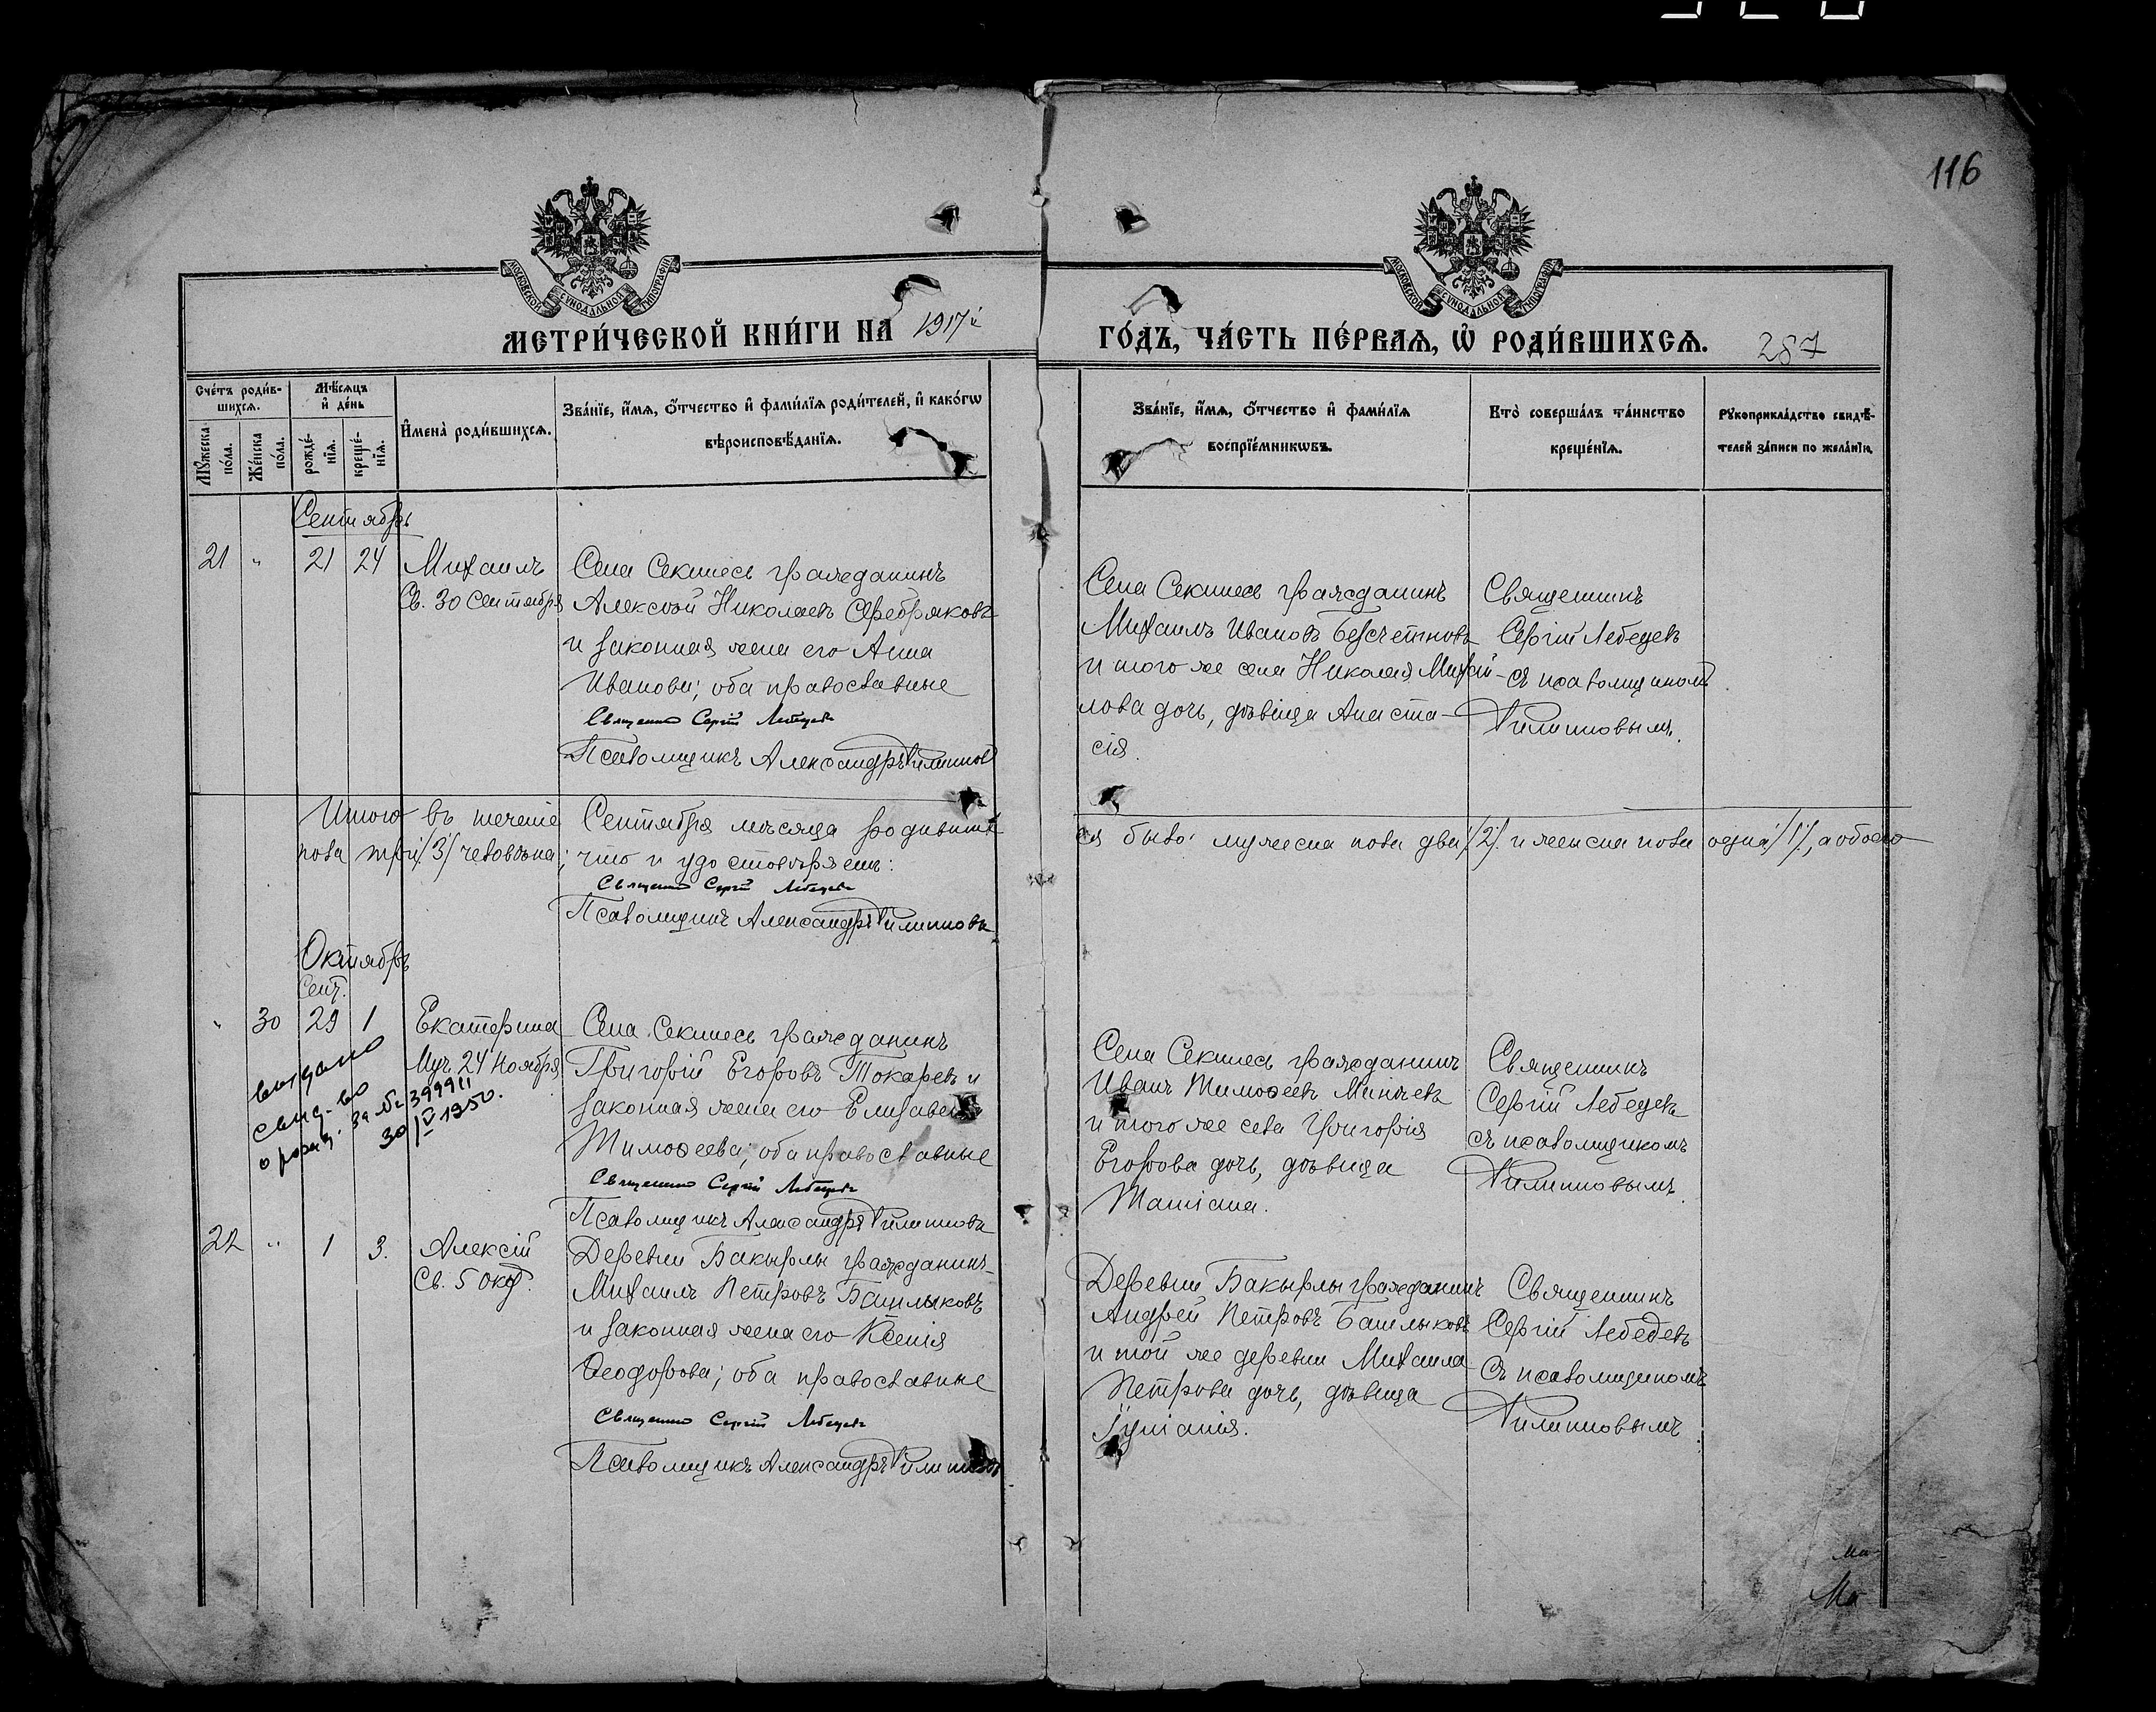 116
МОСКОВСКОЙ СѴНОДАЛЬНОЙ ТИПОГРАФІИ
МОСКОВСКОЙ СѴНОДАЛЬНОЙ ТИПОГРАФІИ
МЕТРИ́ЧЕСКОЙ КНИ́ГИ НА 1917й
ГО́ДЪ, ЧА́СТЬ ПЕ́РВАѦ, Ѡ РОДИ́ВШИХСѦ. 287
Сче́тъ роди́в-
шихсѧ.
Мѣ́сѧцъ
и҆ де́нь
Мꙋ́жеска
по́ла.
Же́нска
по́ла.
рожде́-
нїѧ.
креще́-
нїѧ.
И҆мена̀ роди́вшихсѧ.
Зва́нїе, и҆́мѧ, ѻ҆́тчество и҆ фами́лїѧ роди́телей, и҆ како́гѡ
вѣроисповѣ́данїѧ.
Зва́нїе, и҆́мѧ, ѻ҆́тчество и҆ фами́лїѧ
воспрїе́мникѡвъ.
Кто̀ соверша́лъ та́инство
креще́нїѧ.
Рꙋкоприкла́дство свидѣ́-
телей за́писи по жела́нїю.
Сентябрь
21 " 21 24 Михаилъ
Св. 30 Сентября
Села Секинесь гражданинъ
Алексѣй Николаевъ Серебряковъ
и законная жена его Анна
Иванова; оба православные
Священникъ Сергій Лебедевъ
Псаломщикъ Александръ Филипповъ
Села Секинесь гражданинъ
Михаилъ Ивановъ Безсчетновъ
и того же села Николая Михай-
лова дочь, дѣвица Анаста-
сія.
Священникъ
Сергій Лебедевъ
съ псаломщикомъ
Филипповымъ.
Итого въ теченіе Сентября мѣсяца родивших
ся было: мужеска пола два /2/ и женска пола одна /1/, а обоего
пола три /3/ человѣка; что и удостовѣряемъ:
Священникъ Сергій Лебедевъ
Псаломщикъ Александръ Филипповъ
Октябрь
Сент.
" 30 29 1 Екатерина
Муч. 24 Ноября
выдано
свид-во
о рожд. за № 399911
30/V 1950.
Села Секинесь гражданинъ
Григорій Егоровъ Токаревъ и
законная жена его Елизавета
Тимоѳеева; оба православные
Священникъ Сергій Лебедевъ
Псаломщикъ Александръ Филипповъ
Села Секинесь гражданинъ
Иванъ Тимоѳеевъ Минаевъ
и того же села Григорія
Егорова дочь, дѣвица
Татіана.
Священникъ
Сергій Лебедевъ
съ псаломщикомъ
Филипповымъ.
22 " 1 3. Алексій
Св. 5 Окт.
Деревни Бакырлы гражданинъ
Михаилъ Петровъ Башлыковъ
и законная жена его Ксенія
Ѳеодорова; оба православные
Священникъ Сергій Лебедевъ
Псаломщикъ Александръ Филипповъ
Деревни Бакырлы гражданинъ
Андрей Петровъ Башлыковъ
и той же деревни Михаила
Петрова дочь, дѣвица
Священникъ
Сергій Лебедевъ
съ псаломщикомъ
Филипповымъ.